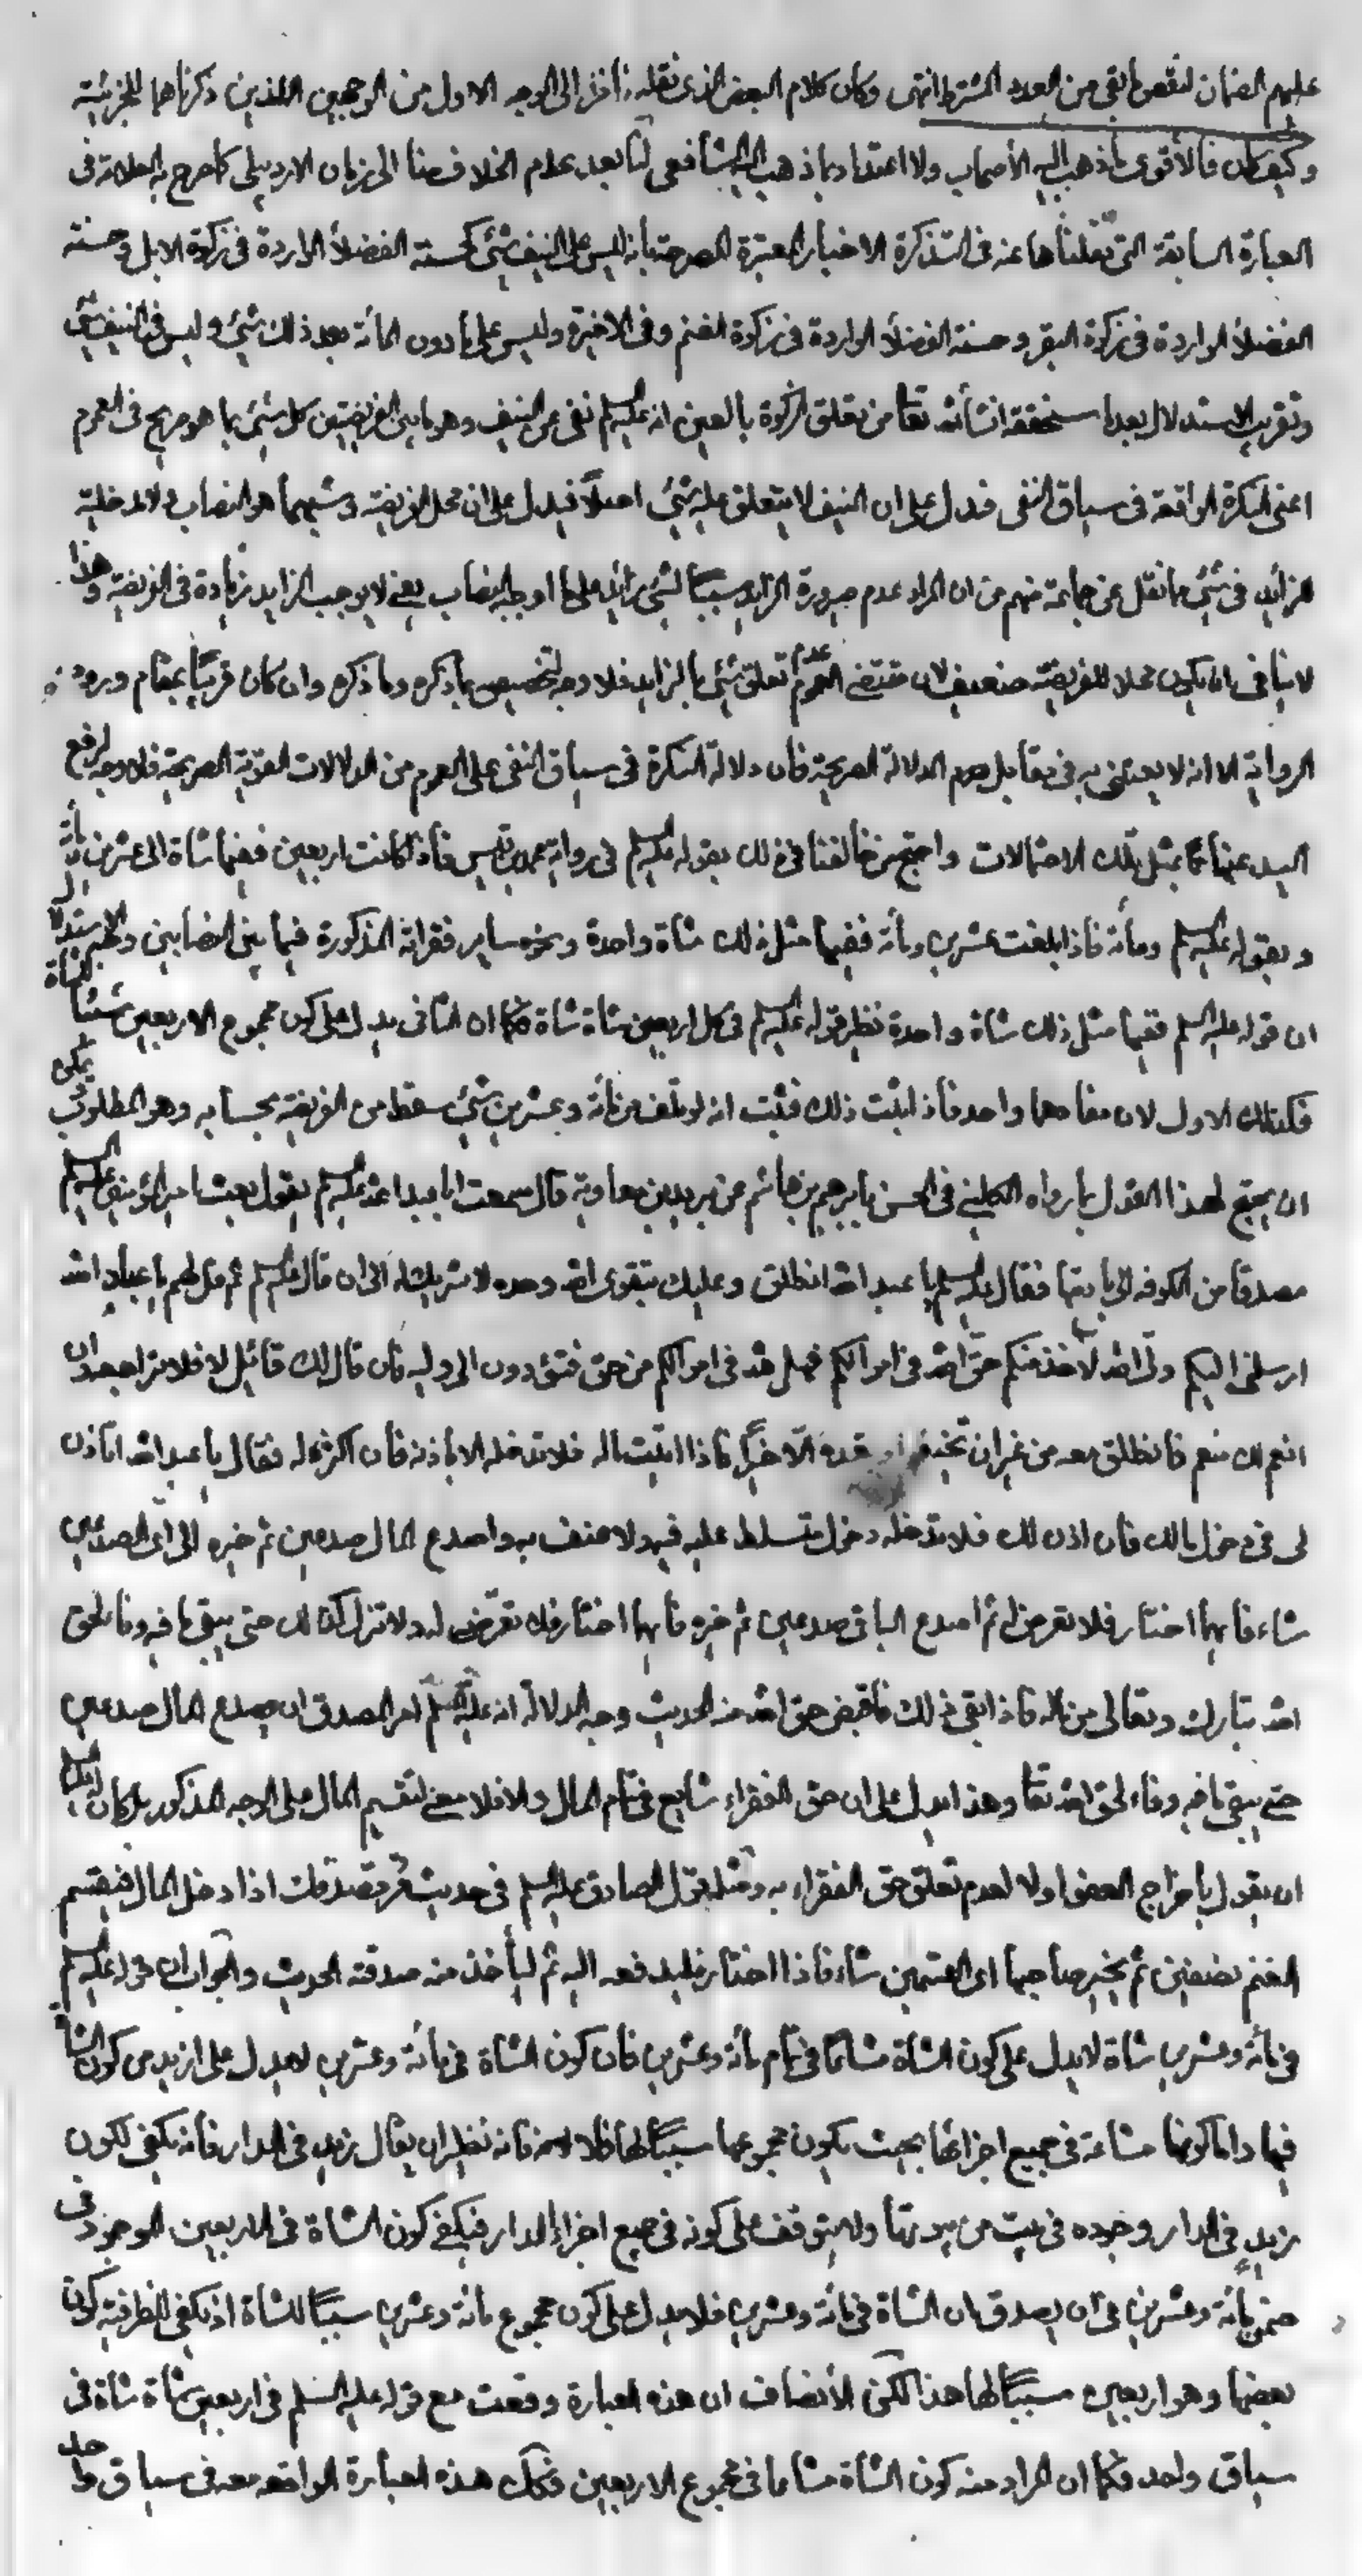 عليهم الضمان لنقص ما بقي من العدد المشترط انتهى وكان كلام البعض الذي نقله ناظر الى الوجه الاول من الوجهين اللذين ذكرناهما للجزئية
وكيف كان فالأقوى ما ذهب اليه الأصحاب ولا اعتداد بما ذهب اليه الشافعي لنا بعد عدم الخلاف منا الى زمان الاردبيلي كما صرح به العلامة في
العبارة السابقة التي نقلناها عنه في التذكرة الاخبار المعتبرة المصرحة بانه ليس على النيف شئ كحسنة الفضلاء الواردة في زكوة الابل وحسنة
الفضلاء الواردة في زكوة البقر وحسنة الفضلاء الواردة في زكوة الغنم وفي الاخيرة وليس على ما دون المأة بعد ذلك شئ وليس في النيف شئ
وتقريب الاستدلال بعد ما سنحققه انشاء الله تعا من تعلق الزكوة بالعين انه عليه السلم نفى عن النيف وهو ما بين الفريضتين كل شئ بما هو صريح في العموم
اعني النكرة الواقعة في سياق النفي فدل على ان النيف لا يتعلق عليه شئ اصلاً فيدل على ان محل الفريضة وسببهما هو النصاب ولا مدخلية
للزائد في شئ ما نقل عن جماعة منهم من ان المراد عدم صيرورة الزايد سبباً لشئ زائد على ما اوجبه النصاب يعني لا يوجب الزايد زيادة في الفريضة وهذا
لا ينافي ان يكون محلا للفريضة ضعيف لان مقتضى العموم عدم تعلق شئ بالزايد فلا وجه لتخصيصه بما ذكره وما ذكره وان كان قريباً بمقام ورود
الرواية الا انه لا يعتنى به في مقابل عموم الدلالة الصريحة فان دلالة النكرة في سياق النفي على العموم من الدلالات القوية الصريحة فلا وجه لرفع
اليد عنها بمثل تلك الاحتمالات واحتج من خالفنا في ذلك بقوله عليه السلم في رواية محمد بن قيس فاذا كانت اربعين ففيها شاة الى عشرين مأة
وبقوله عليه السلم ومأة فاذا بلغت عشرين ومأة ففيها مثل ذلك شاة واحدة ونحوه ساير فقراته المذكورة فيما بين النصابين وتقريب الاستدلال
ان قوله عليه السلم ففيها مثل ذلك شاة واحدة نظير قوله عليه السلم في كل اربعين شاة شاة فكما ان الثاني يدل على كون مجموع الاربعين سبباً للشاة
فكذلك الاول لان مفادهما واحد فاذا ثبت ذلك فثبت انه لو تلف من مأة وعشرين شئ سقط من الفريضة بحسابه وهو المطلوب يمكن
ان يحتج لهذا القول بما رواه الكليني في الحسن بابرهيم بن هاشم عن بريد بن معاوية قال سمعت ابا عبد الله عليه السلم يقول بعث امير المؤمنين عليه السلم
مصدقا من الكوفه الى باديتها فقال عليه السلم يا عبد الله انطلق وعليك بتقوى الله وحده لا شريك له الى ان قال عليه السلم ثم قل لهم يا عباد الله
ارسلني اليكم ولى الله لآخذ منكم حق الله في اموالكم فهل لله في اموالكم من حق فتؤدون الى وليه فان قال لك قائل لا فلا تراجعه وان
انعم لك منعم فانطلق معه من غير ان تخيفه او تعده الا خيراً فاذا اتيت ماله فلا تدخله الا باذنه فان اكثره له فقال يا عبد الله اتأذن
لي في دخول مالك فان اذن لك فلا تدخله دخول متسلط عليه فيه ولا عنف به واصدع المال صدعين ثم خيره الى اي الصدعين
شاء فايهما اختار فلا تعرض له ثم اصدع الباقي صدعين ثم خيره فايهما اختار فلا تعرض له ولا تزال كذلك حتى يبقى ما فيه وفاء لحق
الله تبارك وتعالى من ماله فاذا بقي ذلك فاقبض حق الله منه الحديث وجه الدلالة انه عليه السلم امر المصدق ان يصدع المال صدعين
حتى يبقى ما فيه وفاء لحق الله تعا وهذا يدل على ان حق الفقراء شايع في تمام المال والا فلا معنى لتقسيم المال على الوجه المذكور بل كان عليه السلم
ان يقول باخراج العفو اولا لعدم تعلق حق الفقراء به ومثله قول الصادق عليه السلم في حديث تفرد بصدقات اذا دخل المال فليقسم
الغنم نصفين ثم يخير صاحبها اى القسمين شاء فاذا اختار فليدفعه اليه ثم ليأخذ منه صدقته الحديث والجواب ان قوله عليه السلم
في مأة وعشرين شاة لا يدل على كون الشاة مشاعا في تمام مأة وعشرين فان كون الشاة في مأة وعشرين لا يدل على ازيد من كون الشاة
فيها واما كونها مشاعة في جميع اجزائها بحيث يكون مجموعها سبباً لها فلا فانه نظير ان يقال زيد في الدار فانه يكفي لكون
زيد في الدار وجوده في بيت من بيوتها ولا يتوقف على كونه في جميع اجزاء الدار فيكفي كون الشاة في الاربعين الموجود في
ضمن مأة وعشرين في ان يصدق ان الشاة في مأة وعشرين فلا يدل على كون مجموع مأة وعشرين سبباً للشاة اذ يكفي للظرفية كون
بعضها وهو اربعين سبباً لها هذا لكن الأنصاف ان هذه العبارة وقعت مع قوله عليه السلم في اربعين شاة شاة في
سياق واحد فكما ان المراد منه كون الشاة مشاعا في مجموع الاربعين فكك هذه العبارة الواقعه معه في سياق واحد